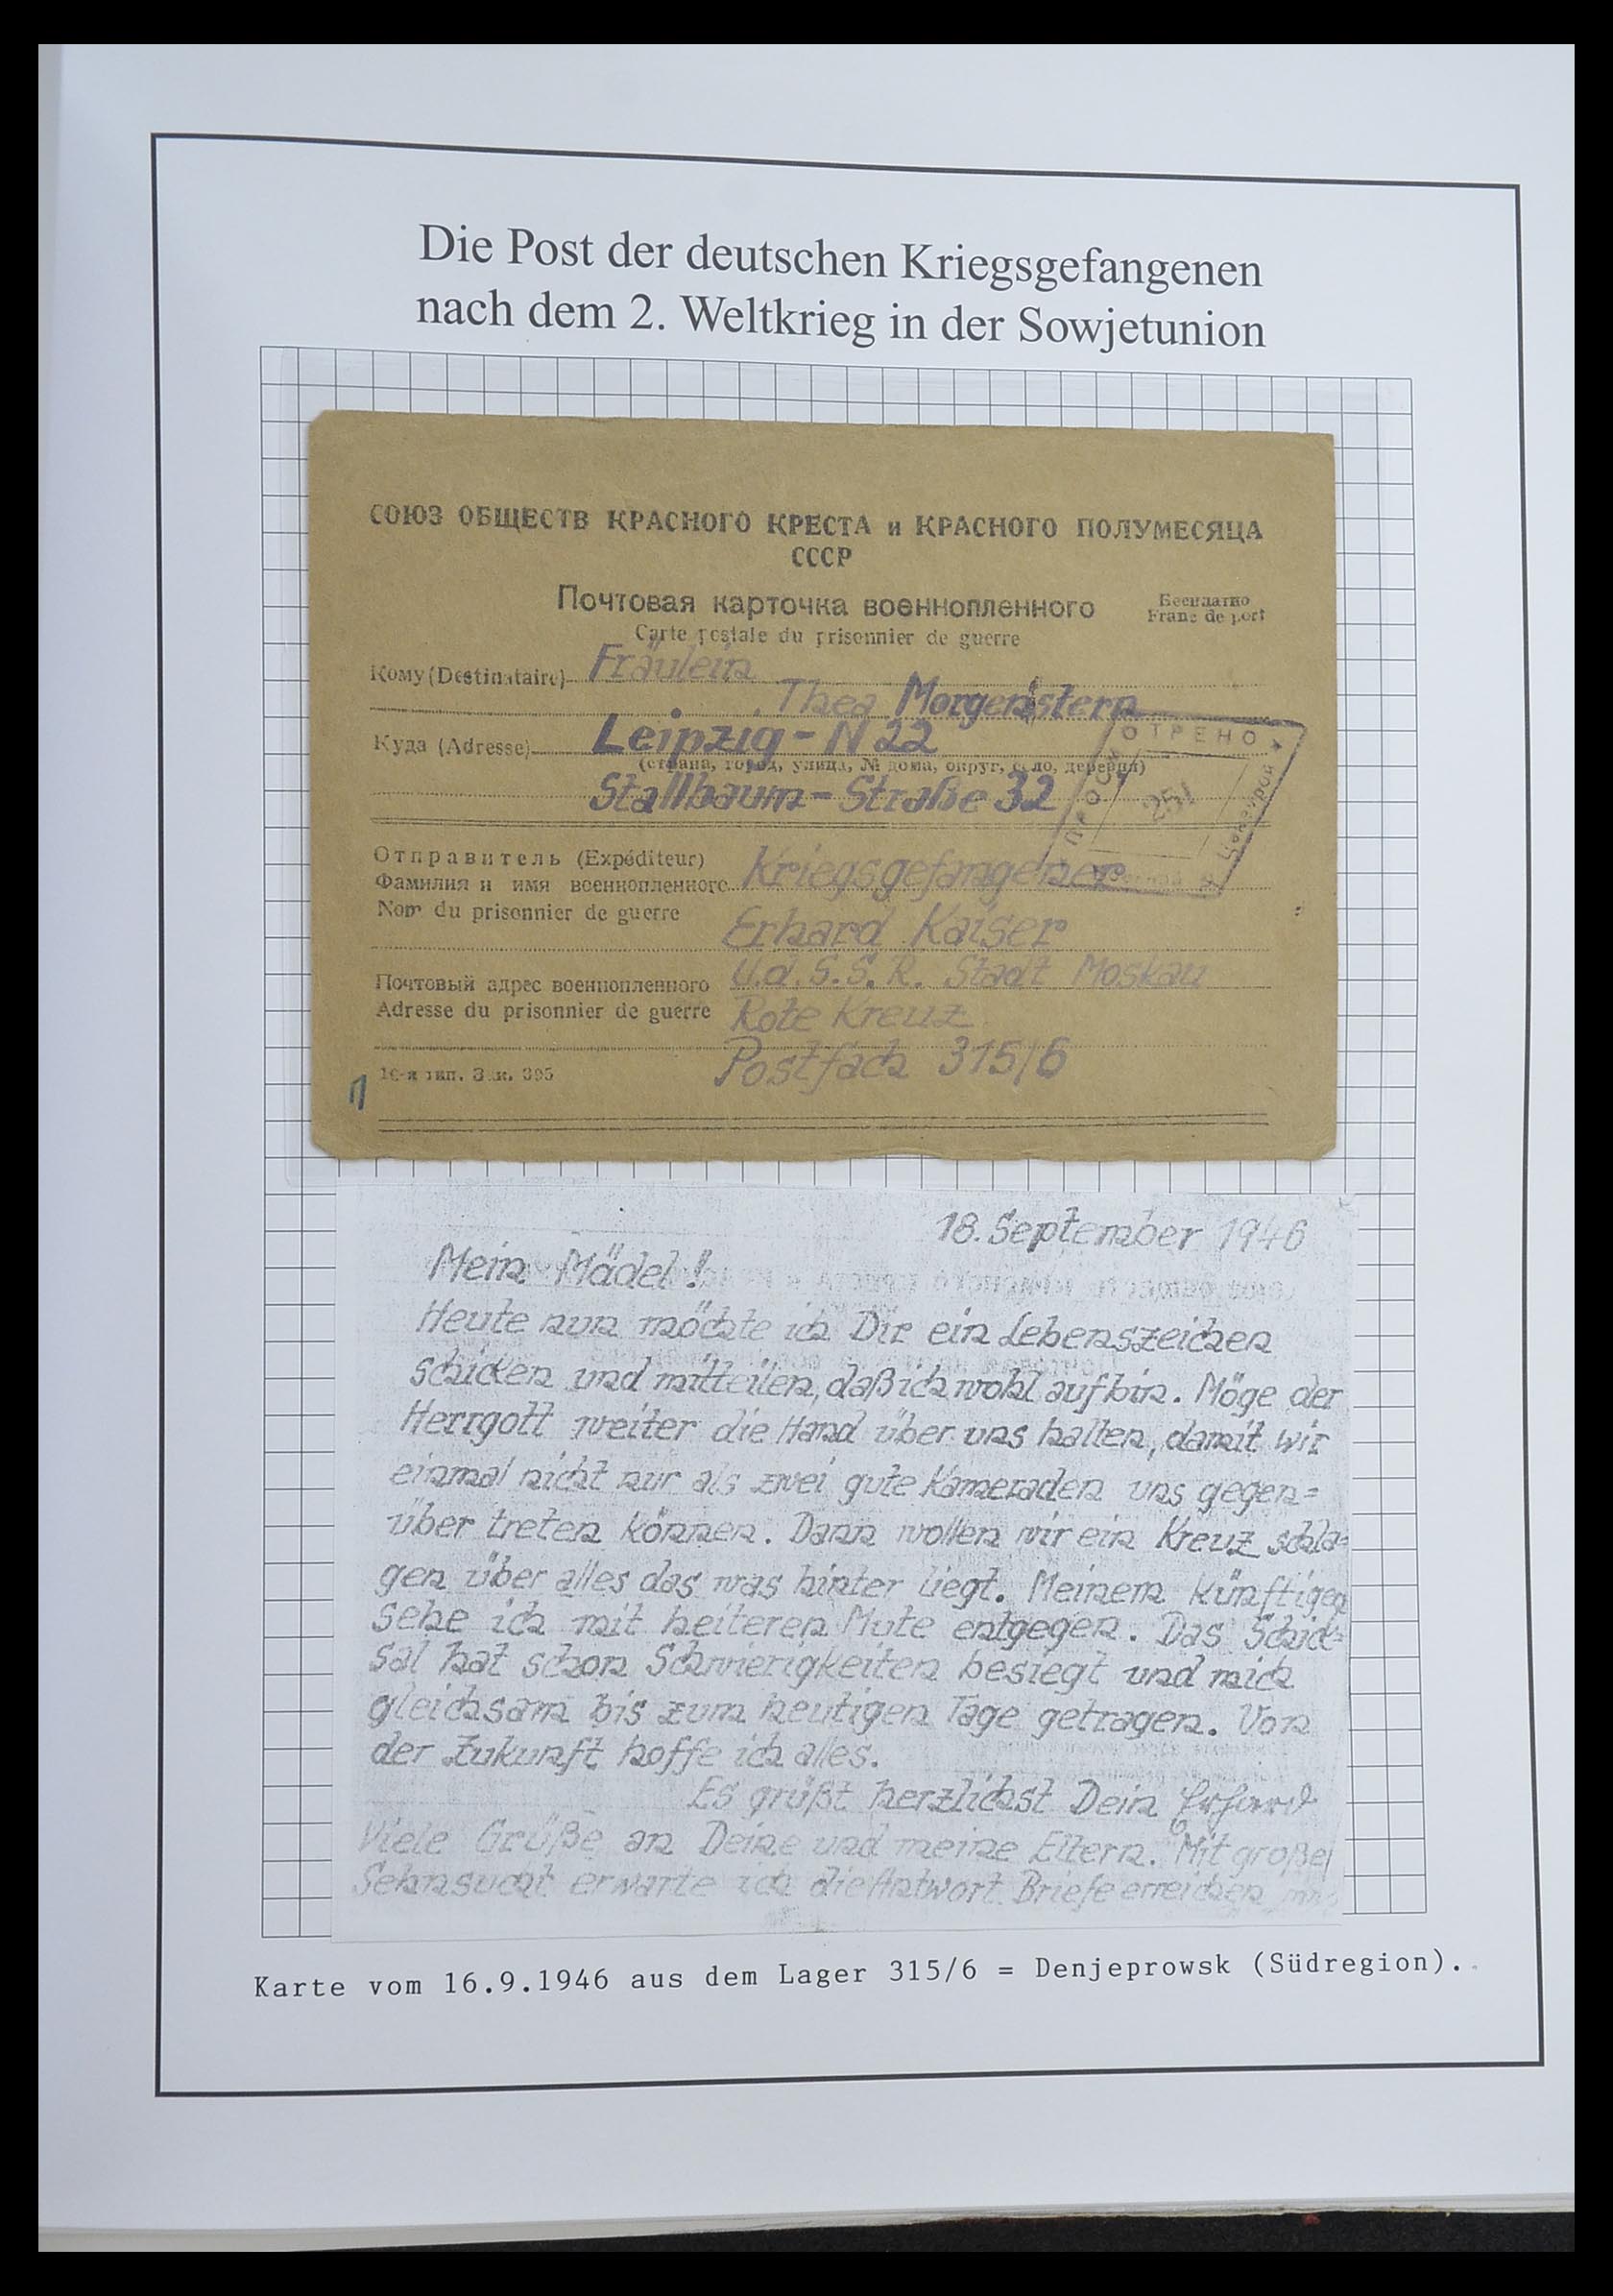 Die Post der deutschen Kriegsgefangenen
nach dem 2. Weltkrieg in der Sowjetunion
СОЮЗ ОБЩЕСТВ КРАСНОГО КРЕСТА и КРАСНОГО ПОЛУМЕСЯЦА
СССР
Почтовая карточка военнопленного
Бесплатно
Carte postale du prisonnier de guerre
Franc de port
Кому (Destinataire) Fräulein
Thea Morgenstern
Куда (Adresse) Leipzig - N 22
(страна, город, улица, № дома, округ, село, деревня)
Stallbaum - Straße 32
ПРОСМОТРЕНО
Цензурой
Отправитель (Expéditeur)
Фамилия и имя военнопленного Kriegsgefangener
Nom du prisonnier de guerre
Erhard Kaiser
Почтовый адрес военнопленного U.d.S.S.R. Stadt Moskau
Adresse du prisonnier de guerre Rote Kreuz
Postfach 315/6
16-я тип. Зак. 395
18. September 1946
Mein Mädel!
Heute nun möchte ich Dir ein Lebenszeichen
schicken und mitteilen, daß ich wohl auf bin. Möge der
Herrgott weiter die Hand über uns halten, damit wir
einmal nicht nur als zwei gute Kameraden uns gegen=
über treten können. Dann wollen wir ein Kreuz schla=
gen über alles das was hinter liegt. Meinem künftigen
sehe ich mit heiteren Mute entgegen. Das Schick=
sal hat schon Schwierigkeiten besiegt und mich
gleichsam bis zum heutigen Tage getragen. Von
der Zukunft hoffe ich alles.
Es grüßt herzlichst Dein Erhard
Viele Grüße an Deine und meine Eltern. Mit großer
Sehnsucht erwarte ich die Antwort. Briefe erreichen
Karte vom 16.9.1946 aus dem Lager 315/6 = Denjeprowsk (Südregion).